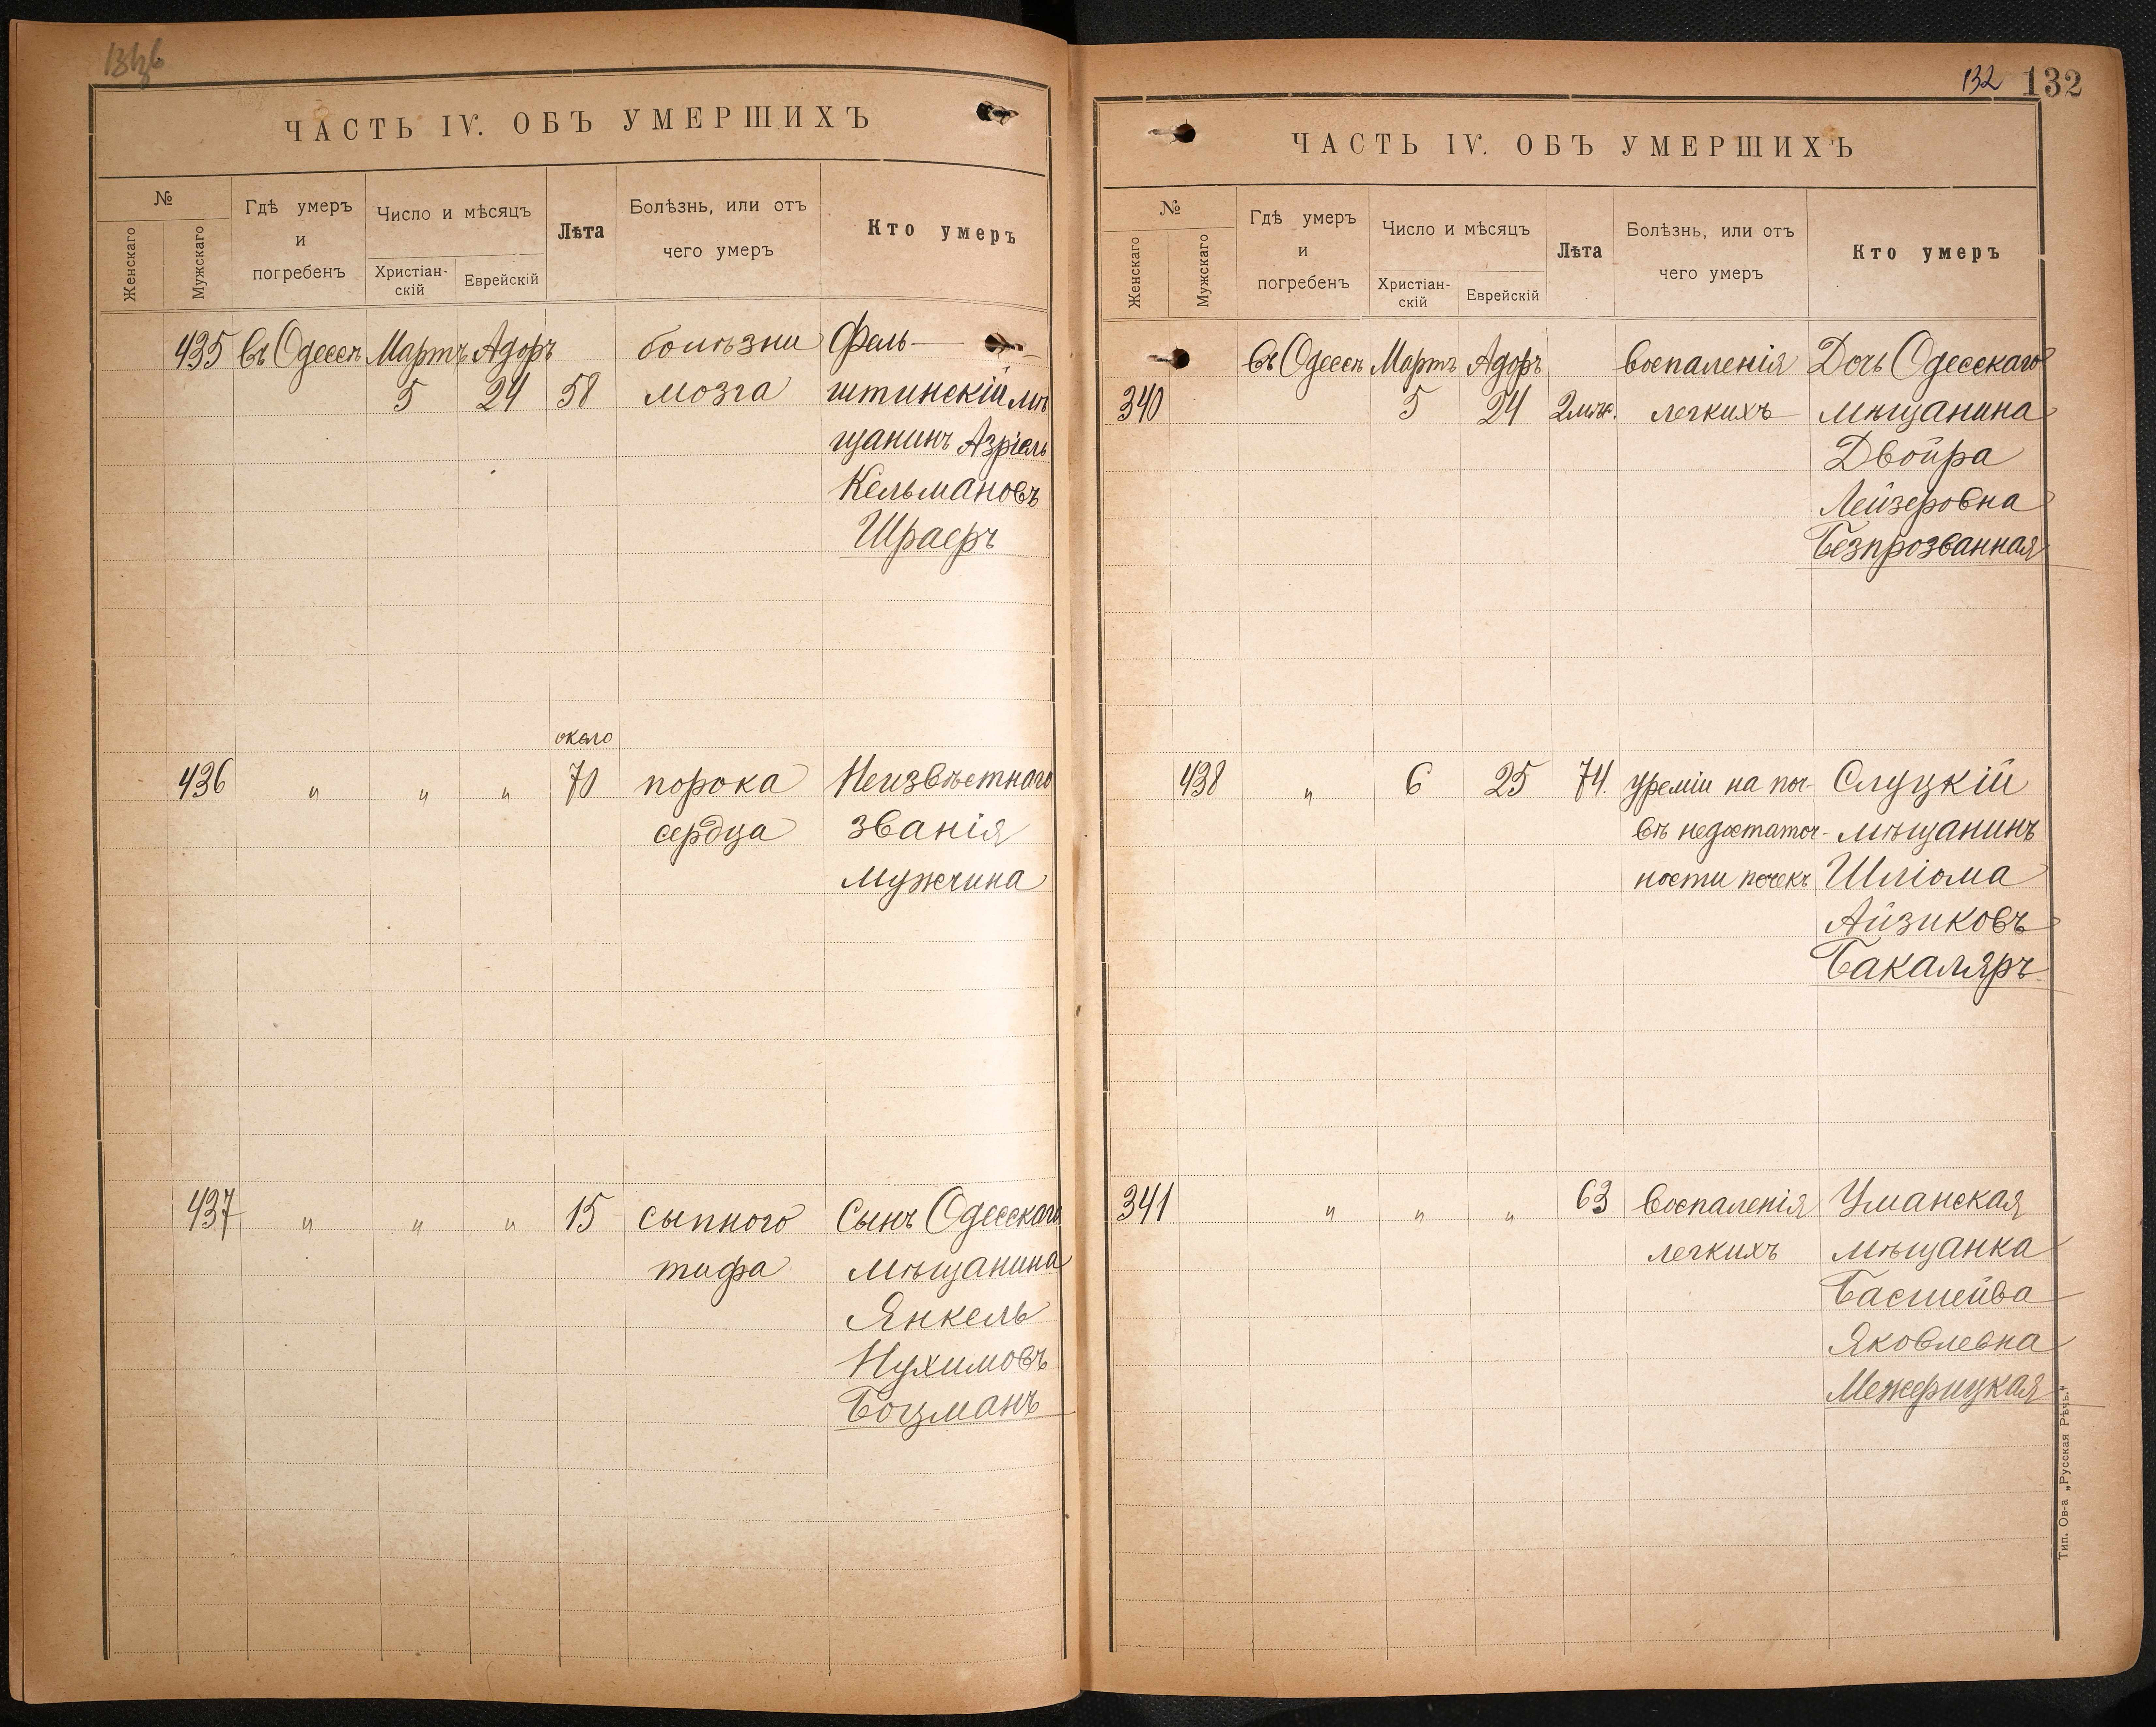 ЧАСТЬ IV. ОБЪ УМЕРШИХЪ
№
Женскаго
Мужскаго
Гдѣ умеръ
и
погребенъ
Число и мѣсяцъ
Христіан-
скій
Еврейскій
Лѣта
Болѣзнь, или отъ
чего умеръ
Кто умеръ
435 въ Одессѣ Мартъ Адоръ болѣзни Фель-
5 24 58 мозга штинскій мѣ
щанинъ Азріель
Кельмановъ
Шраеръ
около
436 " " " 70 порока Неизвѣстнаго
сердца званія
мужчина
437 " " " 15 сыпного Сынъ Одесскаго
тифа мѣщанина
Янкель
Нухимовъ
Боцманъ
132 132
ЧАСТЬ IV. ОБЪ УМЕРШИХЪ
№
Женскаго
Мужскаго
Гдѣ умеръ
и
погребенъ
Число и мѣсяцъ
Христіан-
скій
Еврейскій
Лѣта
Болѣзнь, или отъ
чего умеръ
Кто умеръ
въ Одессѣ Мартъ Адоръ воспаленія Дочь Одесскаго
340 5 24 2 мѣс. легкихъ мѣщанина
Двойра
Лейзеровна
Безпрозванная
438 " 6 25 74. уреміи на поч- Слуцкій
вѣ недостаточ- мѣщанинъ
ности почекъ Шліома
Айзиковъ
Бакаляръ
341 " " " 63 воспаленія Уманская
легкихъ мѣщанка
Басшейва
Яковлевна
Межерицкая
Тип. Ов-а „Русская Рѣчь."